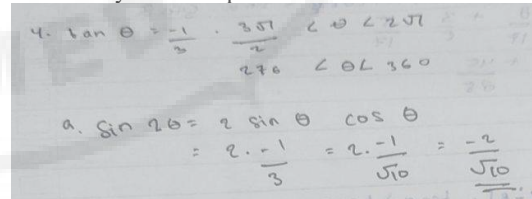 4. tan θ = -1/3 . 3π/2 < θ < 2π
270 < θ < 360
a. sin 2θ = 2 sin θ cos θ
= 2 . -1/3 = 2 . -1/√10 = -2/√10